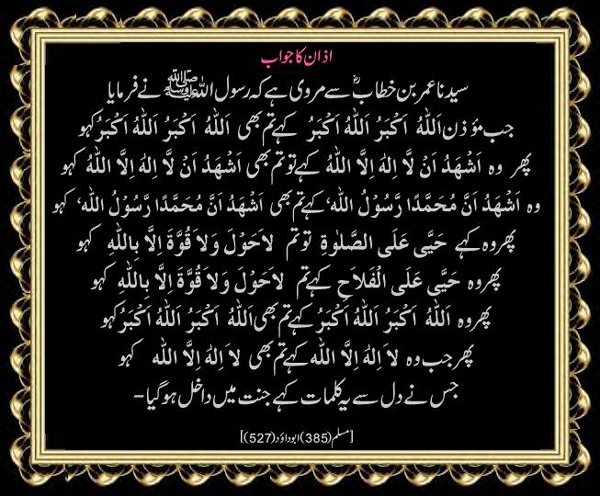 اذان کا جواب
سیدنا عمر بن خطابؓ سے مروی ہے کہ رسول اللہ ﷺ نے فرمایا
جب مؤذن اَللّٰهُ اَكْبَرُ اَللّٰهُ اَكْبَرُ کہے تم بھی اَللّٰهُ اَكْبَرُ اَللّٰهُ اَكْبَرُ کہو
پھر وہ اَشْهَدُ اَنْ لَّا اِلٰهَ اِلَّا اللّٰهُ کہے تو تم بھی اَشْهَدُ اَنْ لَّا اِلٰهَ اِلَّا اللّٰهُ کہو
وہ اَشْهَدُ اَنَّ مُحَمَّدًا رَّسُوْلُ اللّٰه، کہے تم بھی اَشْهَدُ اَنَّ مُحَمَّدًا رَّسُوْلُ اللّٰه، کہو
پھر وہ کہے حَيَّى عَلَى الصَّلٰوةِ تو تم لاَحَوْلَ وَلاَ قُوَّةَ اِلَّا بِاللّٰهِ کہو
پھر وہ حَيَّى عَلَى الْفَلاَحِ کہے تم لاَحَوْلَ وَلاَ قُوَّةَ اِلَّا بِاللّٰهِ کہو
پھر وہ اَللّٰهُ اَكْبَرُ اَللّٰهُ اَكْبَرُ کہے تم بھی اَللّٰهُ اَكْبَرُ اَللّٰهُ اَكْبَرُ کہو
پھر جب وہ لاَ اِلٰهَ اِلَّا اللّٰه کہے تم بھی لاَ اِلٰهَ اِلَّا اللّٰه کہو
جس نے دل سے یہ کلمات کہے جنت میں داخل ہو گیا-
[مسلم(385) ابوداؤد(527)]